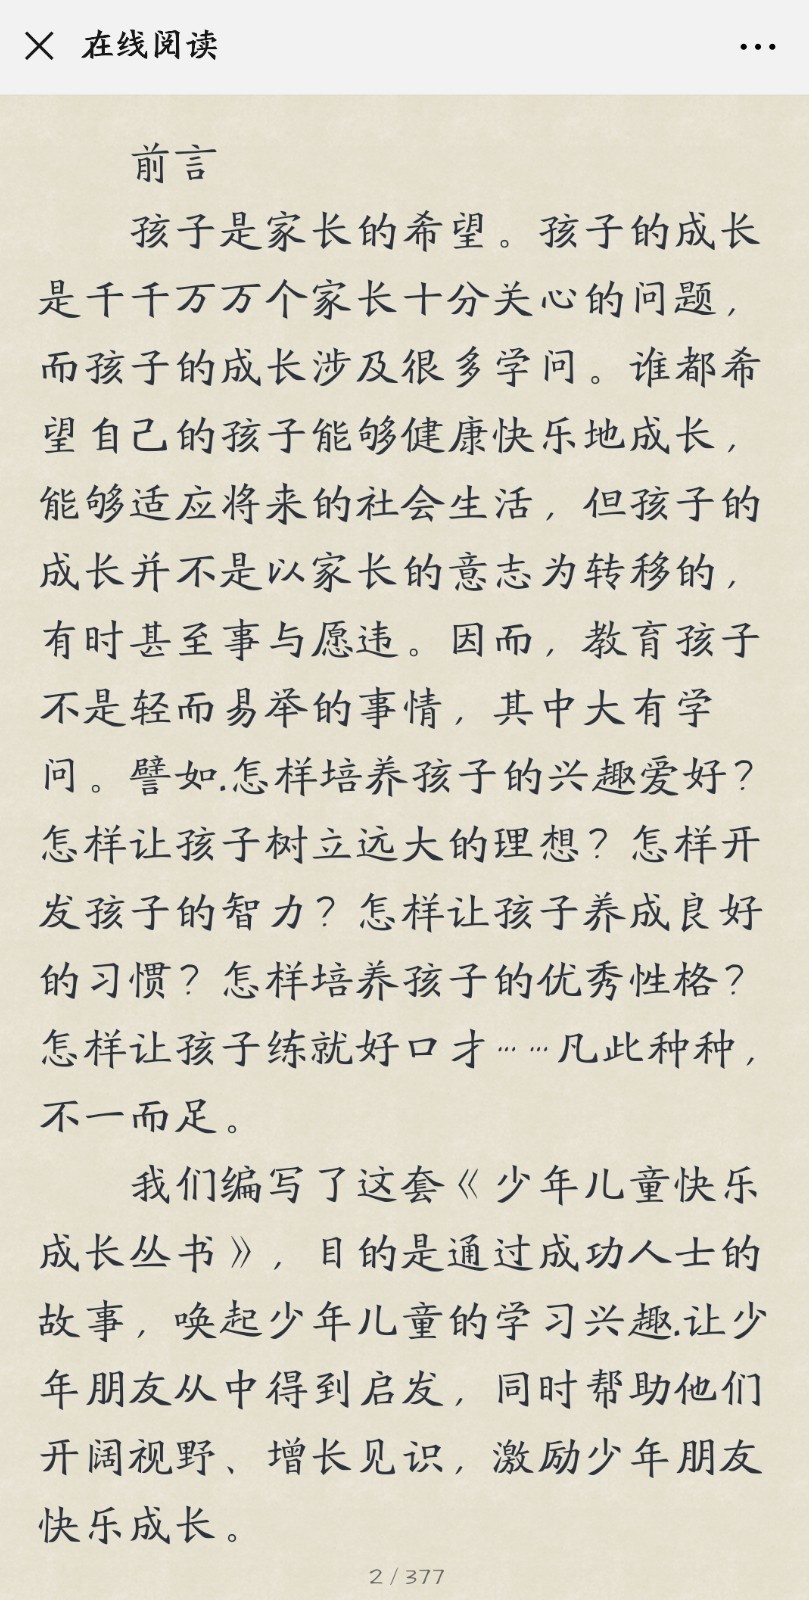 在线阅读
前言
孩子是家长的希望。孩子的成长
是千千万万个家长十分关心的问题，
而孩子的成长涉及很多学问。谁都希
望自己的孩子能够健康快乐地成长，
能够适应将来的社会生活，但孩子的
成长并不是以家长的意志为转移的，
有时甚至事与愿违。因而，教育孩子
不是轻而易举的事情，其中大有学
问。譬如.怎样培养孩子的兴趣爱好？
怎样让孩子树立远大的理想？怎样开
发孩子的智力？怎样让孩子养成良好
的习惯？怎样培养孩子的优秀性格？
怎样让孩子练就好口才……凡此种种，
不一而足。
我们编写了这套《少年儿童快乐
成长丛书》，目的是通过成功人士的
故事，唤起少年儿童的学习兴趣.让少
年朋友从中得到启发，同时帮助他们
开阔视野、增长见识，激励少年朋友
快乐成长。
2 / 377